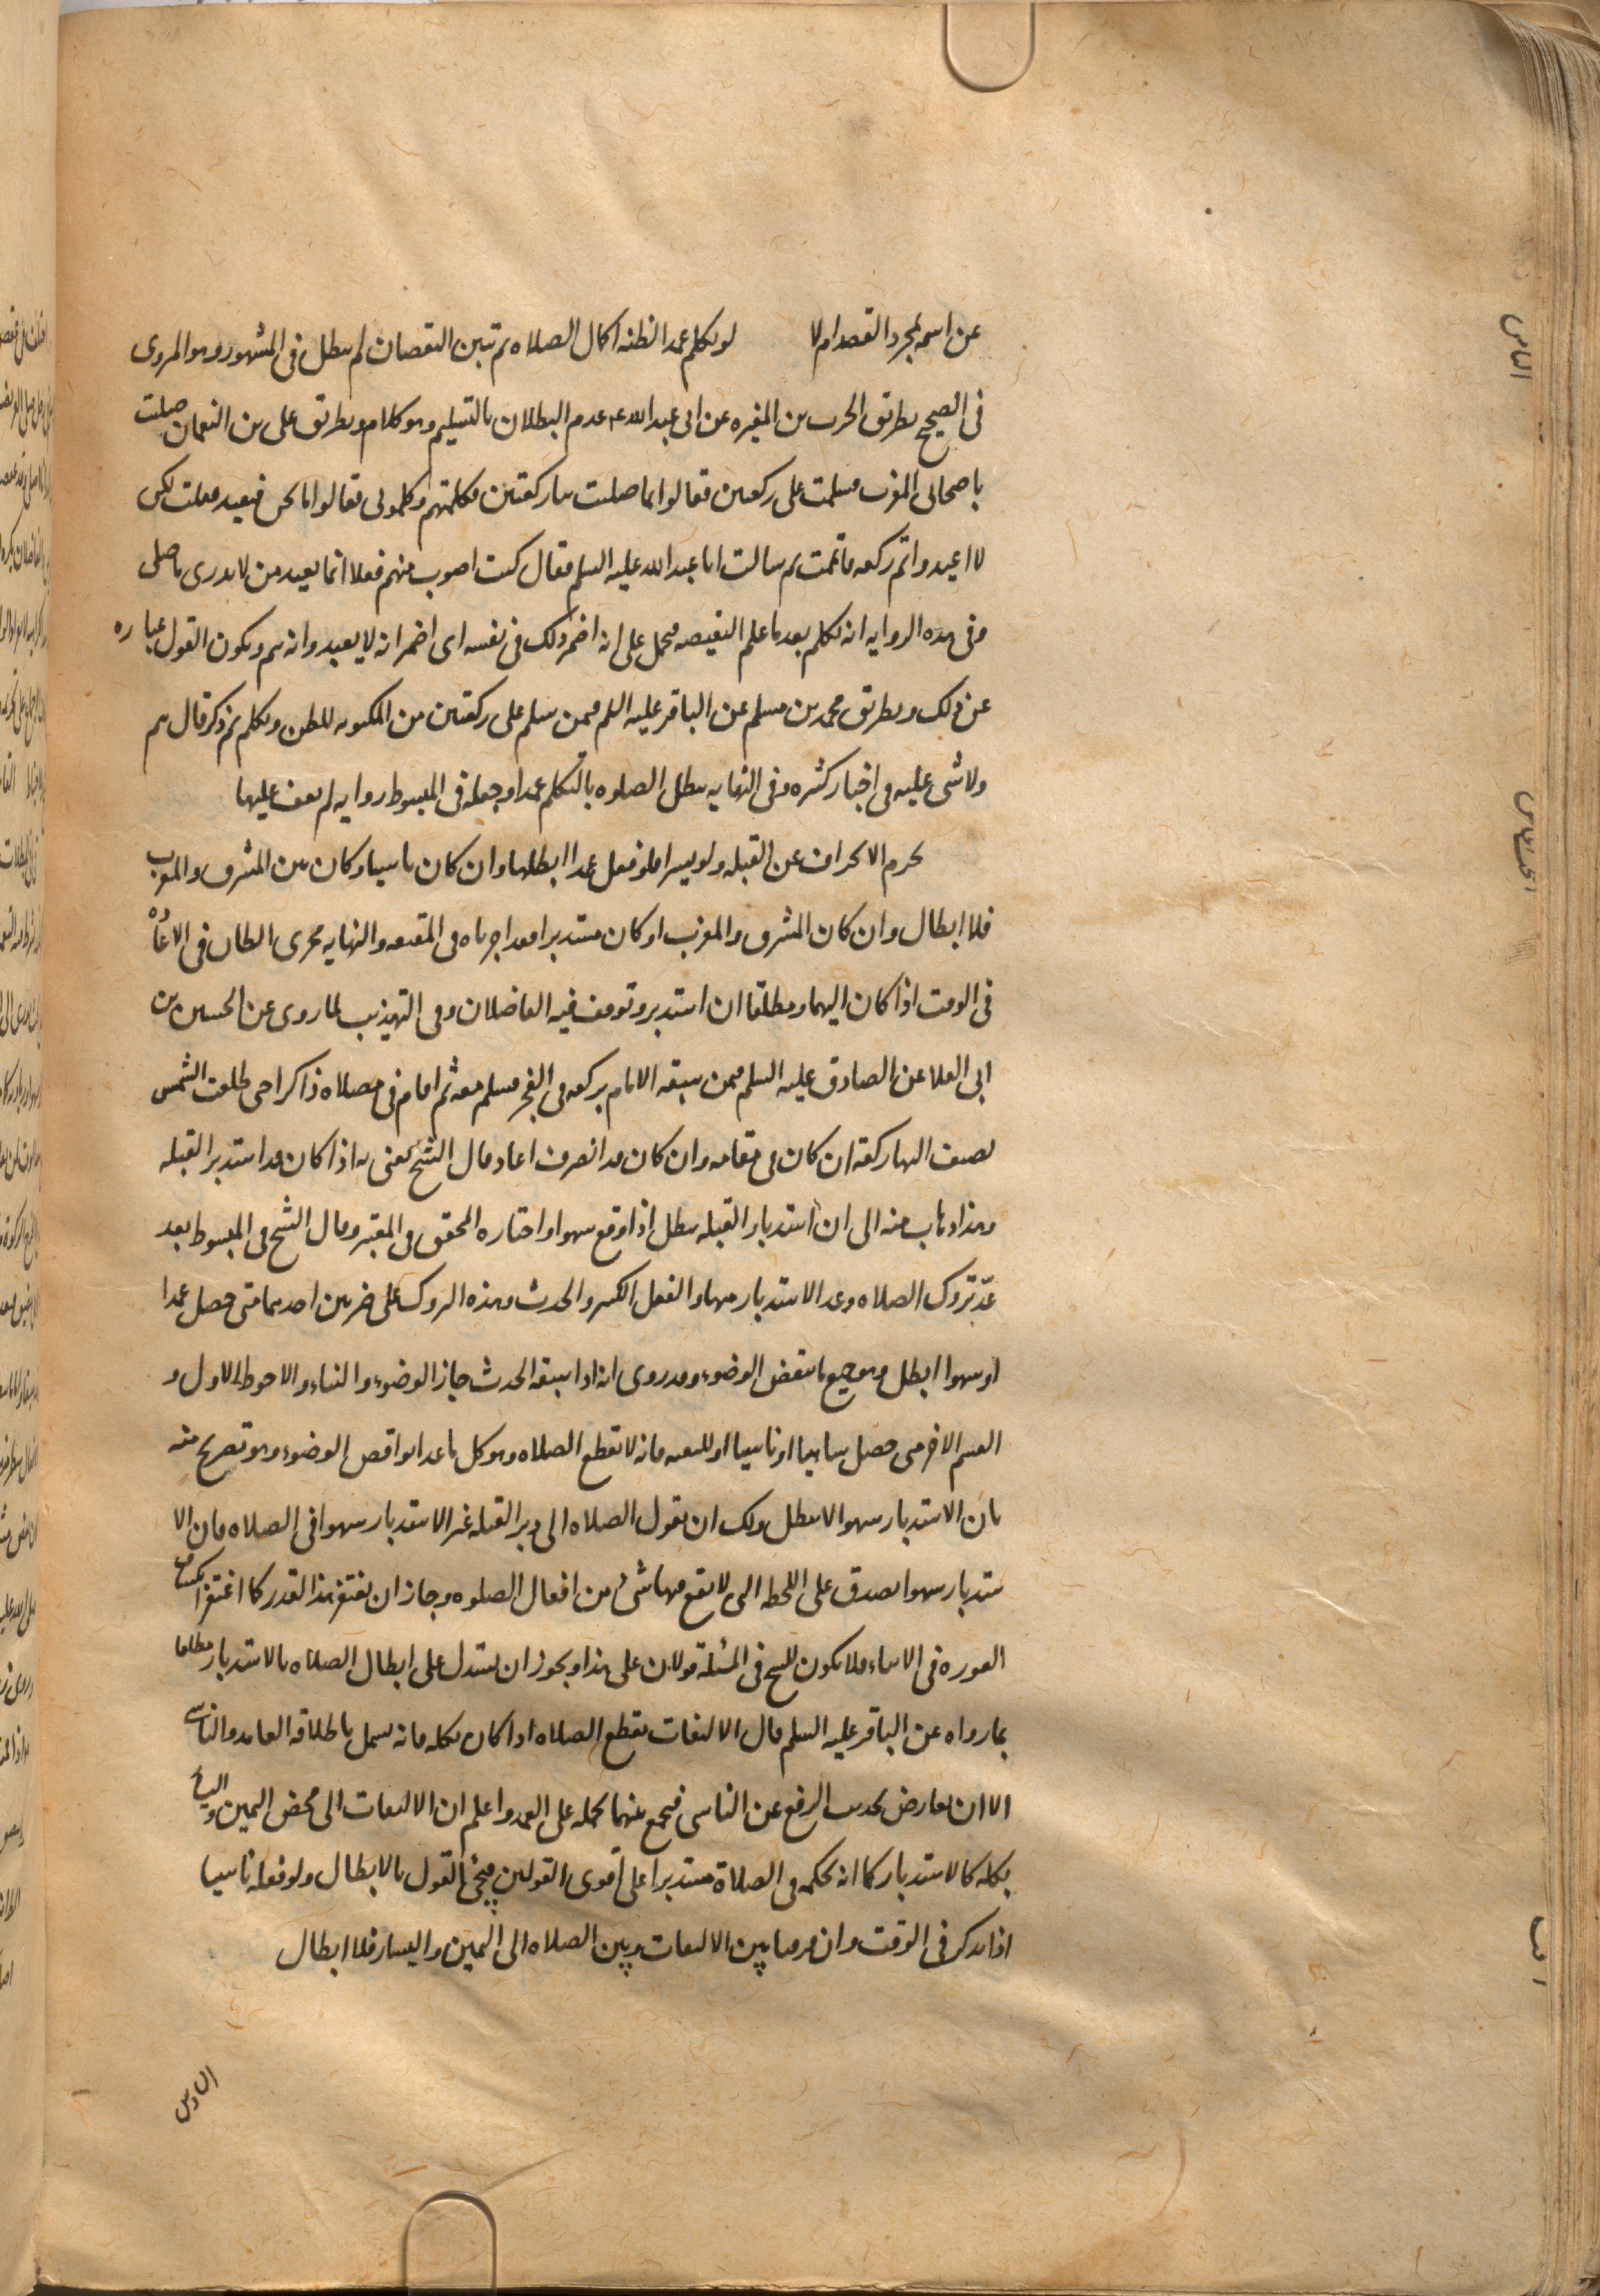 عن اسمه لمجرد القصد ام لا لو تكلم عمدا لظنه اكمال الصلاه ثم تبين النقصان لم يبطل في المشهور وهو المروى
في الصحيح بطريق الحرث بن المغيره عن ابى عبد الله ع عدم البطلان بالتسليم وهو كلام وبطريق على بن النعمان صليت
باصحابى المغرب فسلمت على ركعتين فقالوا انما صليت بنا ركعتين فكلمتهم وكلمونى فقالوا اما نحن فنعيد فقلت لكنى
لا اعيد واتم ركعه فاتممت ثم سالت ابا عبد الله عليه السلم فقال كنت اصوب منهم فعلا انما يعيد من لا يدرى ما صلى
وفى هذه الروايه انه تكلم بعد ما علم النقيصه فيحمل على انه اضمر ذلك فى نفسه اى اضمر انه لا يعيد وانه يتم ويكون القول عباره
عن ذلك وبطريق محمد بن مسلم عن الباقر عليه السلم فيمن سلم على ركعتين من المكتوبه للظن وتكلم ثم ذكر قال يتم
ولا شى عليه فى اخبار كثيره وفى النهايه يبطل الصلوه بالتكلم عمدا وجعله فى المبسوط روايه لم نقف عليها
يحرم الانحراف عن القبله ولو يسيرا فلو فعل عمدا ابطلها وان كان ناسيا وكان بين المشرق والمغرب
فلا ابطال وان كان المشرق والمغرب او كان مستدبرا فقد اجرياه فى المقنعه والنهايه مجرى الظان فى الاعاده
فى الوقت اذا كان اليهما ومطلقا ان استدبر وتوقف فيه الفاضلان وفى التهذيب لما روى عن الحسين بن
ابى العلا عن الصادق عليه السلم فيمن سبقه الامام بركعه فى الفجر فسلم معه ثم اقام فى مصلاه ذاكرا حى طلعت الشمس
نضيف اليها ركعة ان كان فى مقامه وان كان قد انصرف اعاد قال الشيخ يعنى به اذا كان قد استدبر القبله
وهذا ذهاب منه الى ان استدبار القبله يبطل اذا وقع سهوا واختاره المحقق فى المعتبر وقال الشيخ فى المبسوط بعد
عدّ تروك الصلاه وعد الاستدبار منها والفعل الكثير والحدث وهذه التروك على ضربين احدهما متى حصل عمدا
او سهوا ابطل وهو جميع ما ينقض الوضوء وقد روى انه اذا سبقه الحدث جاز الوضوء والبناء والاحوط الاول و
القسم الاخر متى حصل ساهيا او ناسيا او للتقيه فانه لا تقطع الصلاه وهو كل ما عدا نواقض الوضوء وهو تصريح منه
بان الاستدبار سهوا لا يبطل ولك ان نقول الصلاه الى دبر القبله غير الاستدبار سهوا فى الصلاه فان الا
ستدبار سهوا يصدق على اللحظه التى لا يقع فيها شئ من افعال الصلوه وجاز ان يغتفر هذا القدر كما اغتفر انكشاف
العوره فى الاثناء فلا يكون للشيخ فى المسئلة قولان على هذا ويجوز ان يستدل على ابطال الصلاه بالاستدبار مطلقا
بما رواه عن الباقر عليه السلم قال الالتفات يقطع الصلاه اذا كان بكله فانه يشمل باطلاقه العامد والناسى
الا ان يعارض بحديث الرفع عن الناسى فيجمع بينهما بحمله على العمد واعلم ان الالتفات الى محض اليمين واليسار
بكله كالاستدبار كما انه بحكمه فى الصلاة مستدبرا على اقوى القولين فيجئ القول بالابطال ولو فعله ناسيا
اذا تذكر فى الوقت وان فرقنا بين الالتفات وبين الصلاه الى اليمين واليسار فلا ابطال
السادس